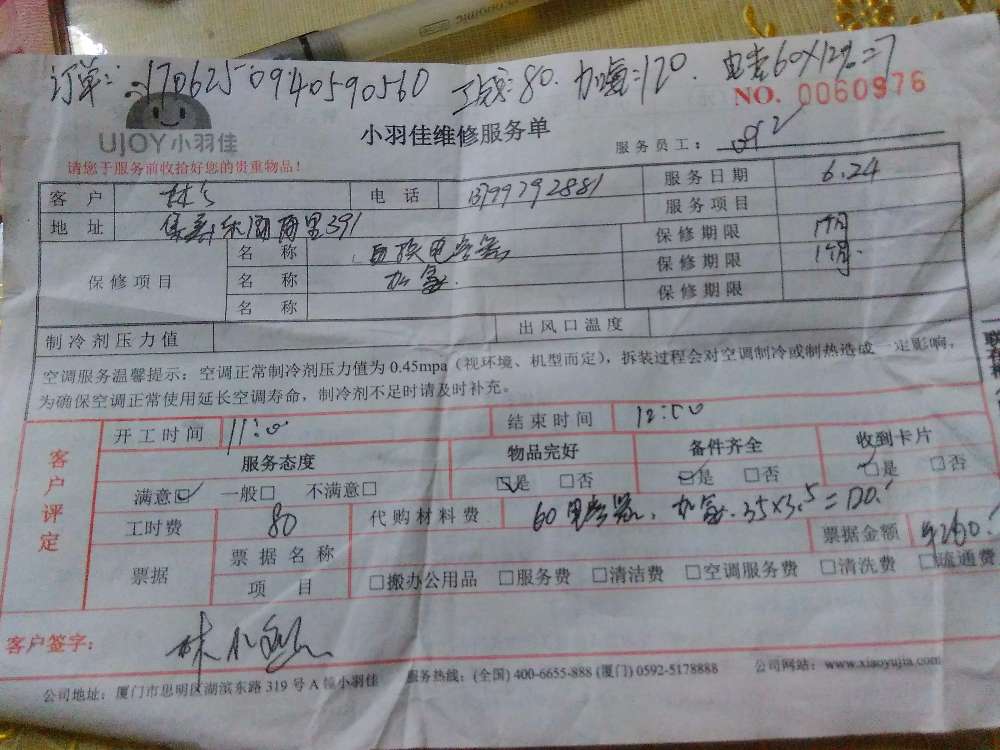 订单:170625 0940590560 工费:80. 加氟:120. 电容60X12%=7
NO. 0060976
UJOY小羽佳
小羽佳维修服务单
服务员工:
请您于服务前收拾好您的贵重物品!
客户 林 电话 13799792881 服务日期 6.24
服务项目
地址 391
保修项目
名称 更换电容器 保修期限 1个月
名称 加氟. 保修期限 1个月.
名称 保修期限
制冷剂压力值 出风口温度
空调服务温馨提示:空调正常制冷剂压力值为 0.45mpa(视环境、机型而定),拆装过程会对空调制冷或制热造成一定影响,
为确保空调正常使用延长空调寿命,制冷剂不足时请及时补充。
客户评定
开工时间 11:00 结束时间 12:00
服务态度 物品完好 备件齐全 收到卡片
满意☑ 一般□ 不满意□ ☑是 □否 ☑是 □否 ☑是 □否
工时费 80 代购材料费 60电容器、加氟.35X3.5=120.
票据金额 260.
票据
票据名称
项目 □搬办公用品 □服务费 □清洁费 □空调服务费 □清洗费 □疏通费
客户签字: 林小
公司地址:厦门市思明区湖滨东路 319 号 A 幢小羽佳 服务热线:(全国) 400-6655-888 (厦门) 0592-5178888 公司网站:www.xiaoyujia.com